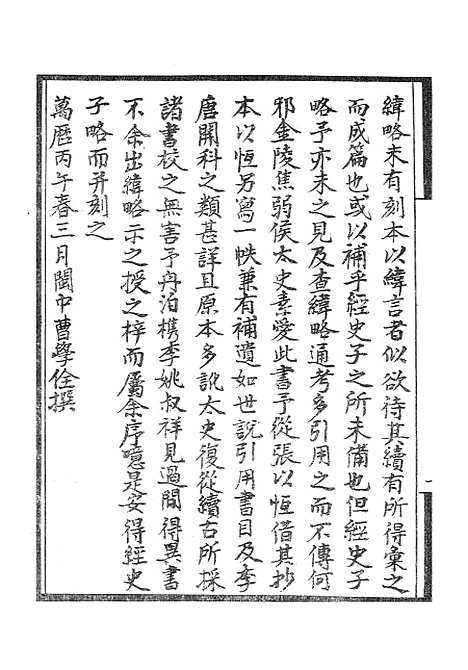 緯略未有刻本以緯言者似欲待其續有所得彙之
而成篇也或以補乎經史子之所未備也但經史子
略予亦未之見及查緯略通考多引用之而不傳何
邪金陵焦弱侯太史素愛此書予從張以恆借其抄
本以恆另寫一帙兼有補遺如世說引用書目及李
唐開科之類甚詳且原本多訛太史復從續古所採
諸書校之無害予舟泊檇李姚叔祥見過間得異書
不余出緯略示之授之梓而屬余序噫是安得經史
子略而并刻之
萬歷丙午春三月閩中曹學佺撰
一